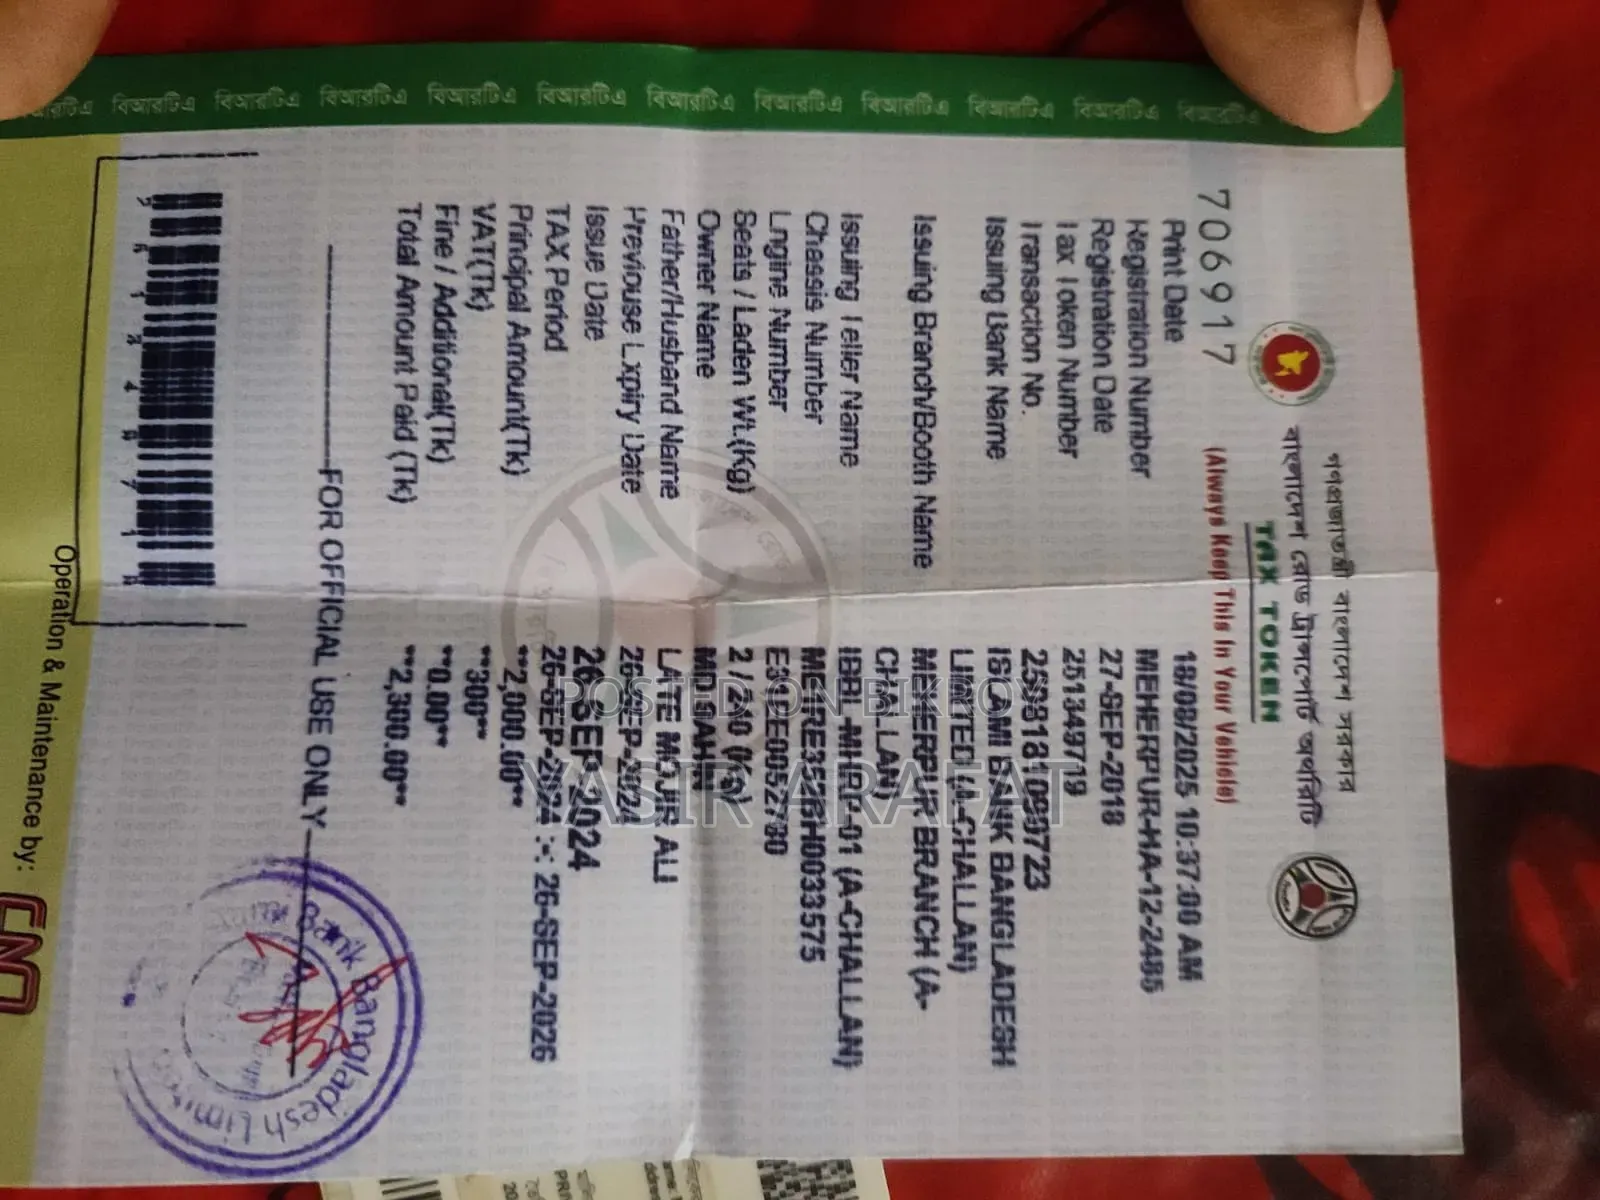 বিআরটিএ বিআরটিএ বিআরটিএ বিআরটিএ বিআরটিএ বিআরটিএ বিআরটিএ বিআরটিএ বিআরটিএ বিআরটিএ বিআরটিএ বিআরটিএ
গণপ্রজাতন্ত্রী বাংলাদেশ সরকার
বাংলাদেশ রোড ট্রান্সপোর্ট অথরিটি
TAX TOKEN
(Always Keep This In Your Vehicle)
706917
Print Date 18/08/2025 10:37:00 AM
Registration Number MEHERPUR-HA-12-2485
Registration Date 27-SEP-2018
Tax Token Number 251349719
Transaction No.
Issuing Bank Name ISLAMI BANK BANGLADESH
LIMITED (A-CHALLAN)
Issuing Branch/Booth Name MEHERPUR BRANCH (A-
CHALLAN)
Issuing Teller Name IBBL-MHRP-01 (A-CHALLAN)
Chassis Number
Engine Number
Seats / Laden Wt.(Kg) 2 / 240 (Kg)
Owner Name MD.
Father/Husband Name LATE MOJIR ALI
Previouse Expiry Date 26-SEP-2024
Issue Date 26-SEP-2024
TAX Period 26-SEP-2024 :-: 26-SEP-2026
Principal Amount(Tk) **2,000.00**
VAT(Tk) **300**
Fine / Additional(Tk) **0.00**
Total Amount Paid (Tk) **2,300.00**
FOR OFFICIAL USE ONLY
Bank Bangladesh
Operation & Maintenance by:
YASIR ARAFAT